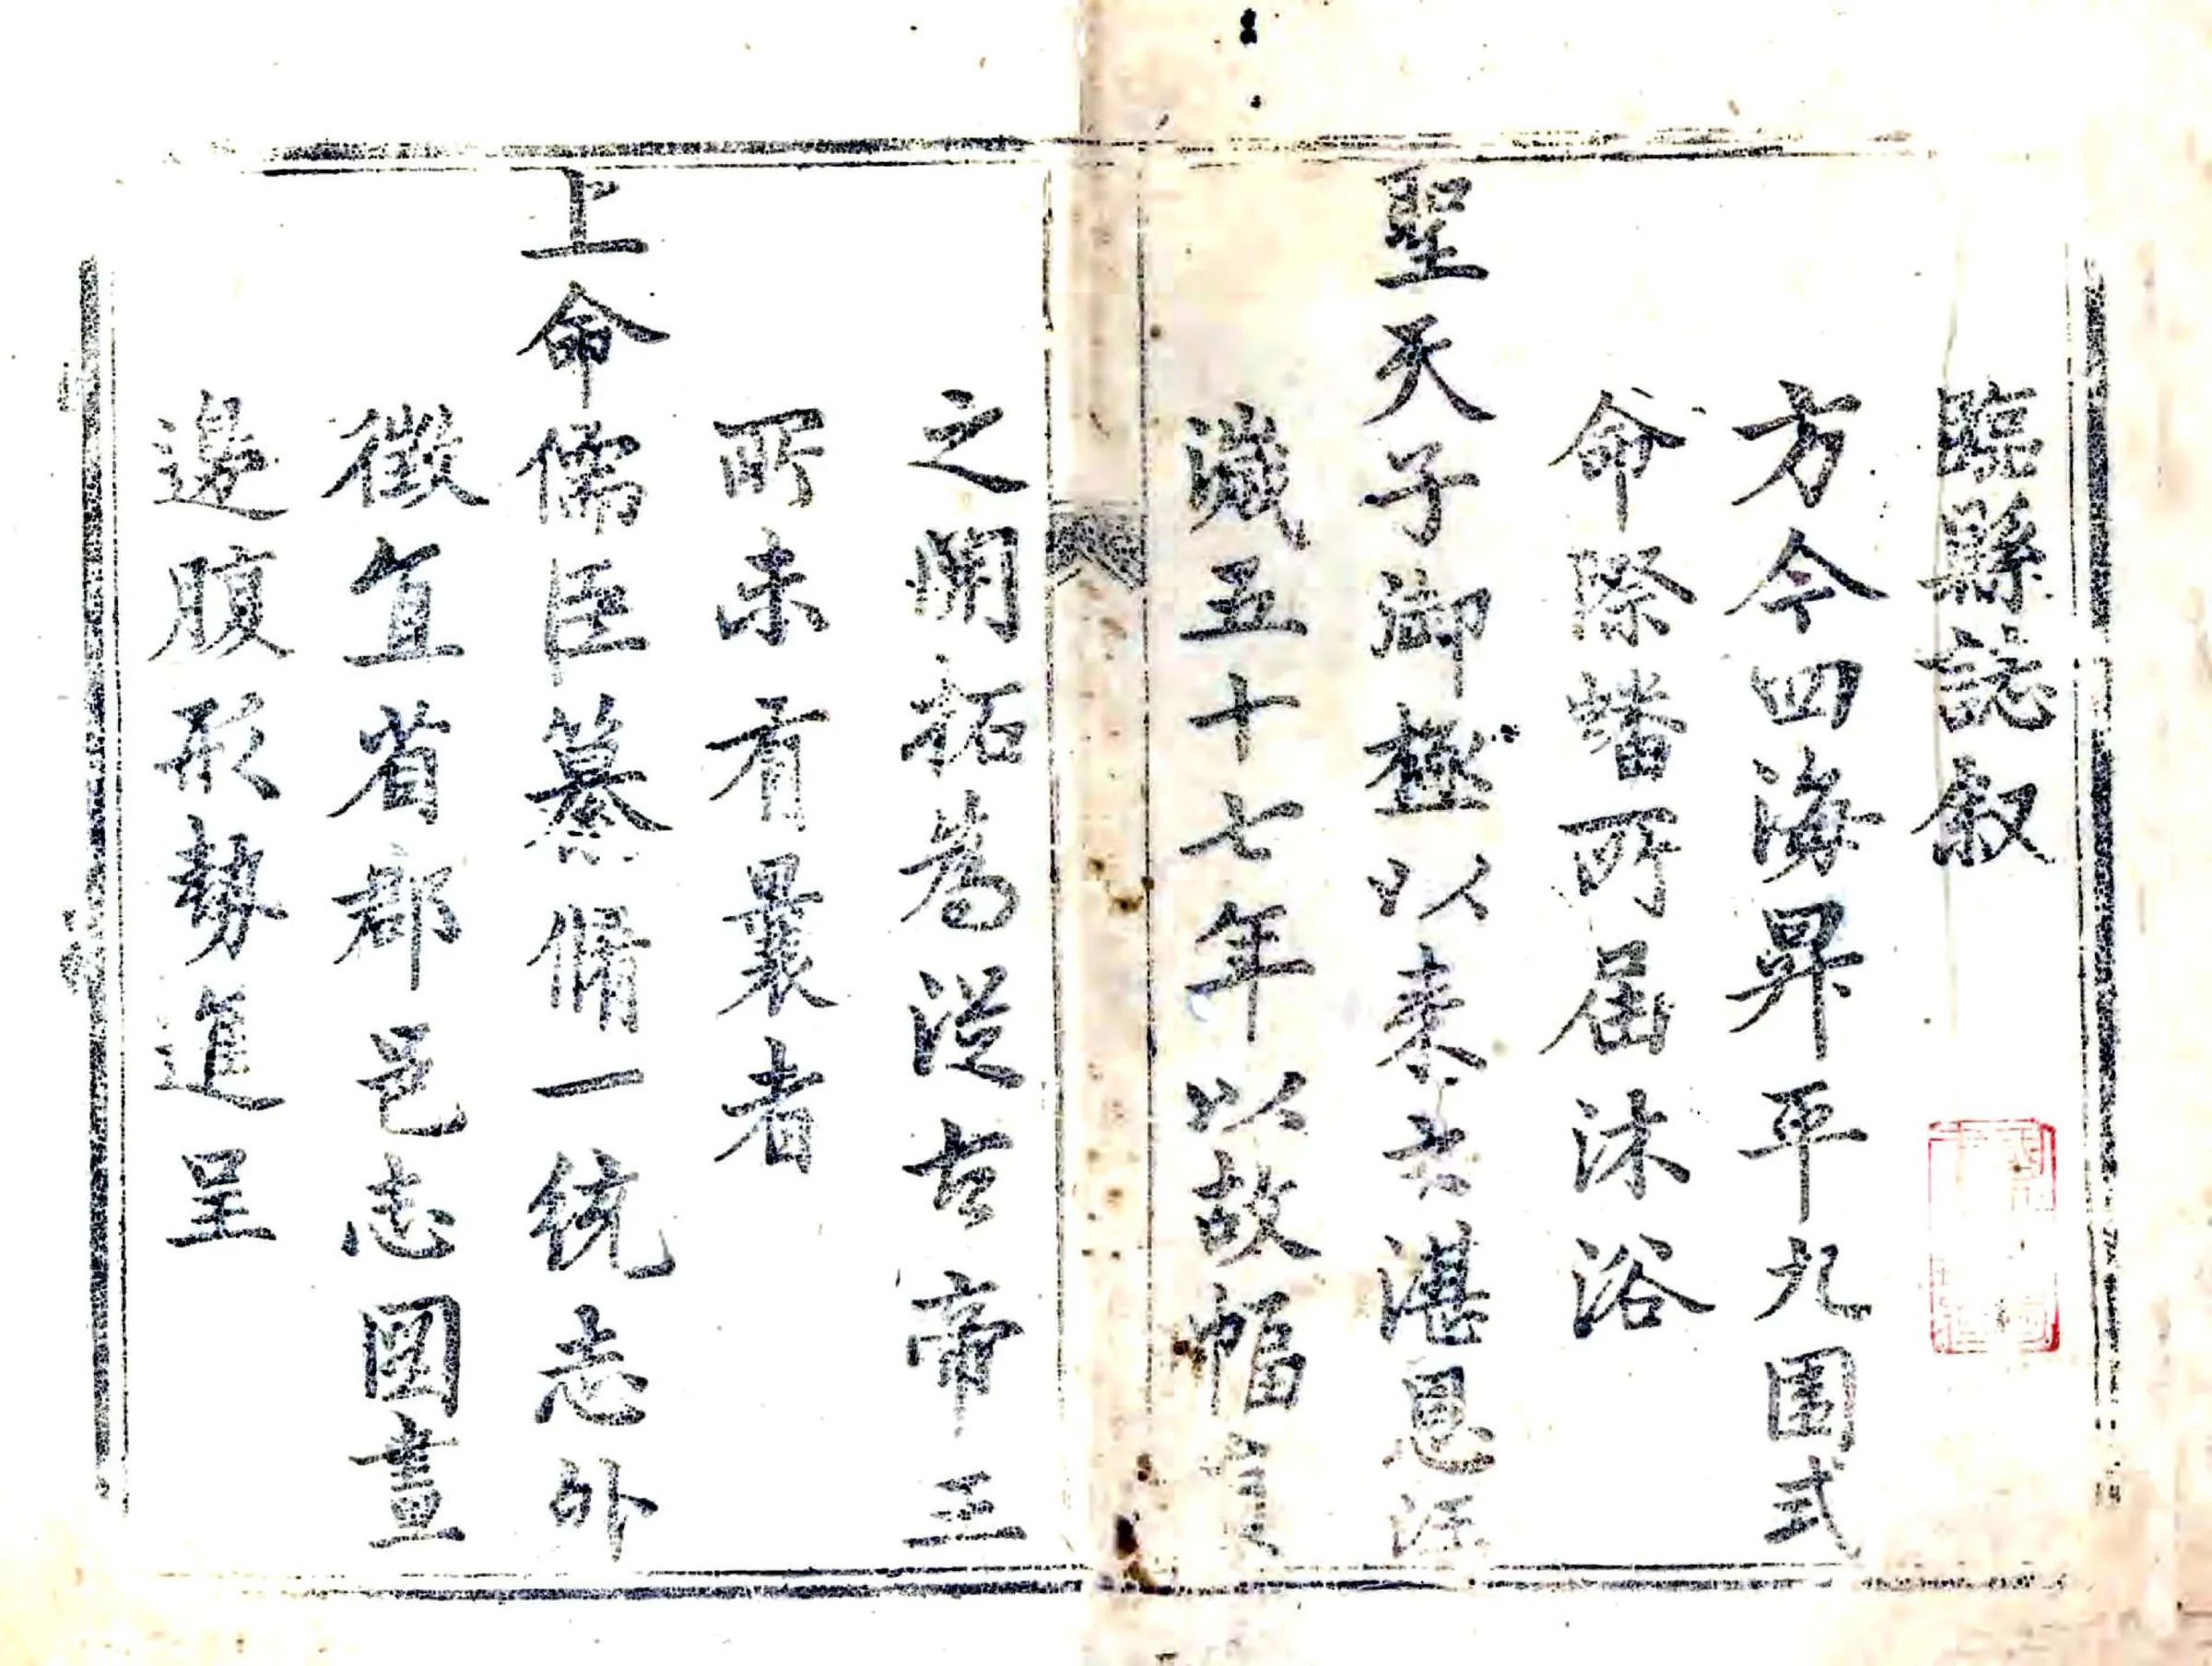 臨縣誌叙
方今四海昇平九圍式
命際蟠所届沐浴
聖天子御極以来六湛恩汪
濊五十七年以故幅𢄙
之開拓為從古帝王
所未有曩者
上命儒臣纂脩一統志外
徵直省郡邑志圖畫
邉腹形勢進呈